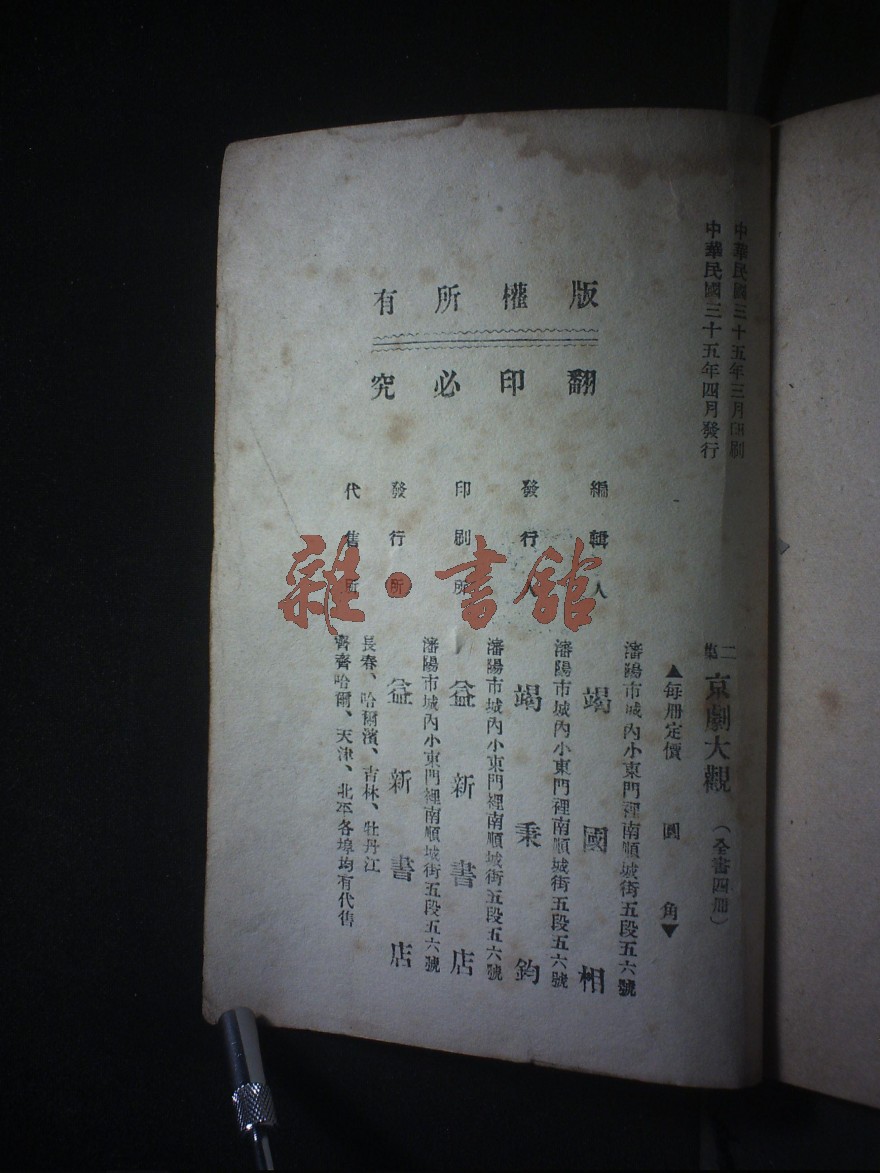 中華民國三十五年三月印刷
中華民國三十五年四月發行
二集 京劇大觀 （全書四冊）
▲每册定價 圓 角▼
版權所有
翻印必究
瀋陽市城內小東門裡南順城街五段五六號
編輯人 竭國相
瀋陽市城內小東門裡南順城街五段五六號
發行人 竭秉鈞
瀋陽市城內小東門裡南順城街五段五六號
印刷所 益新書店
瀋陽市城內小東門裡南順城街五段五六號
發行所 益新書店
長春、哈爾濱、吉林、牡丹江
代售所 齊齊哈爾、天津、北平各埠均有代售
雜·書館